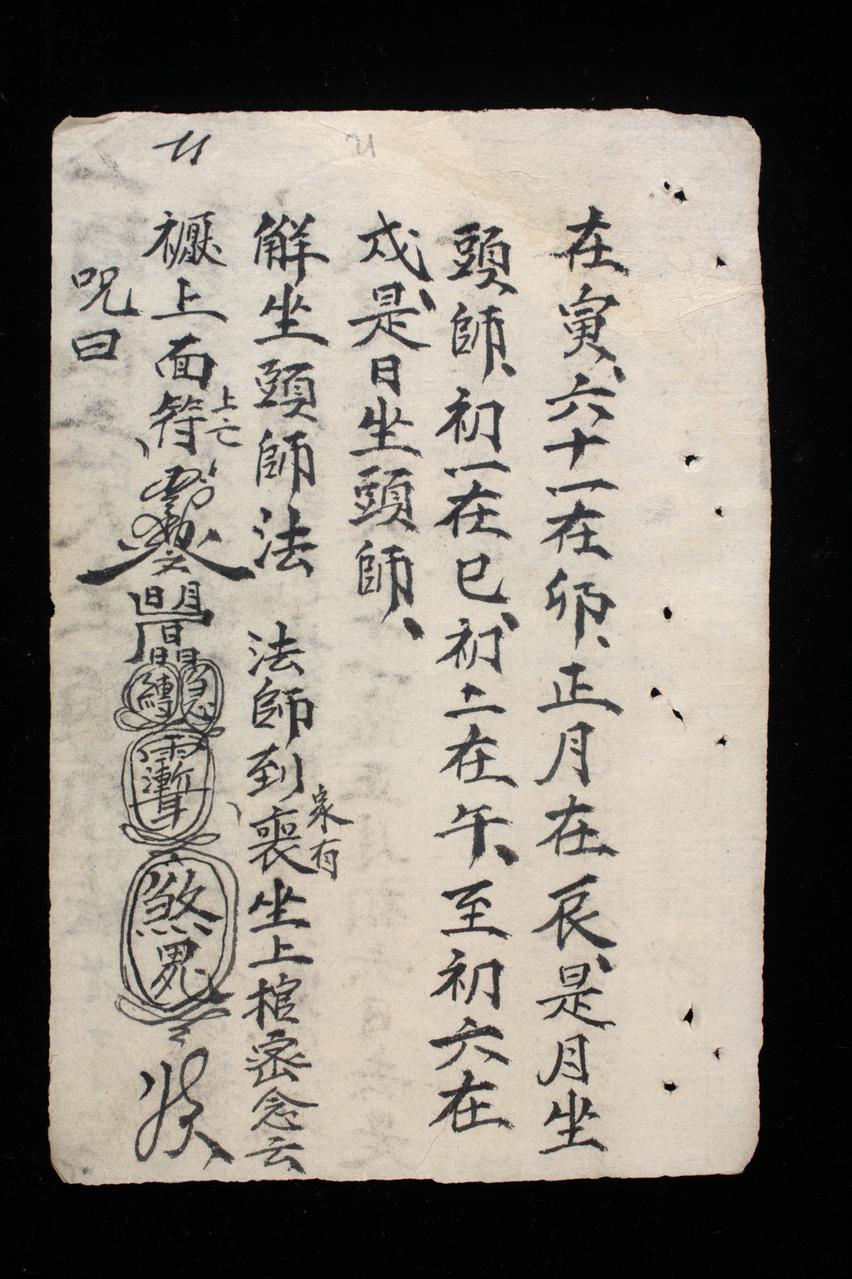 在寅、六十一在卯、正月在辰、是月坐
頭師、初一在巳、初二在午、至初六在
戍、是日坐頭師、
解坐頭師法 法師到喪家有坐上棺密念云
禰上面符上亡
煞鬼
呪曰